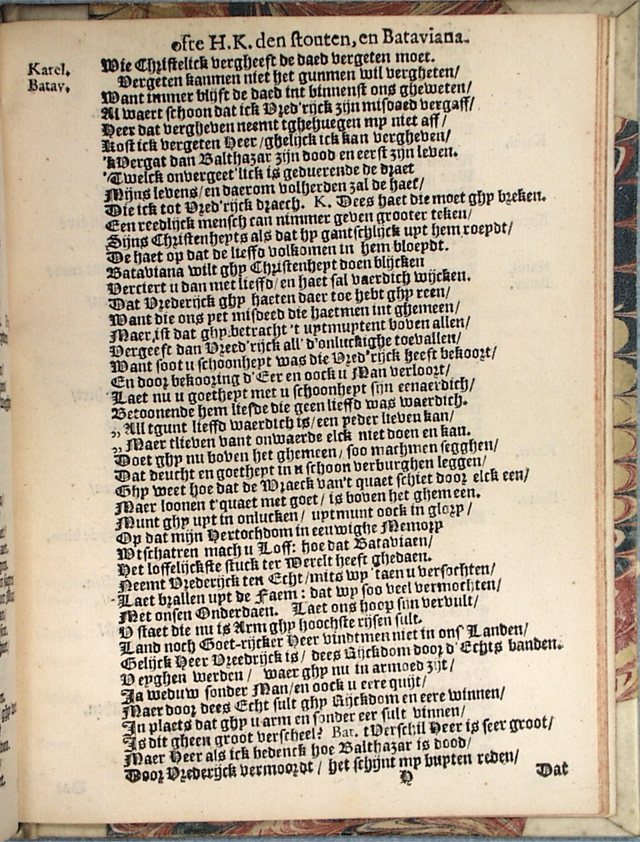 ofte H.K. den stouten, en Bataviana.
Karel. Wie Christelick vergheeft de daed vergeten moet.
Batav. Vergeten kanmen niet het gunmen wil vergheten/
Want immer blijft de daed int binnenst ons gheweten/
Al waert schoon dat ick Vred'rijck zijn misdaed vergaff/
Heer dat vergheven neemt tghehuegen my niet aff/
Kost ick vergeten Heer/ghelijck ick kan vergheven/
'kVergat dan Balthazar zijn dood en eerst zijn leven.
'Twelck onvergeet'lick is geduerende de draet
Mijns levens/en daerom volherden zal de haet/
Die ick tot Vred'rijck draech. K. Dees haet die moet ghy breken.
Een reedlijck mensch can nimmer geven grooter teken/
Sijns Christenheyts als dat hy gantschlijck uyt hem roeydt/
De haet op dat de lieffd volkomen in hem bloeydt.
Bataviana wilt ghy Christenheyt doen blijcken
Verciert u dan met lieffd/en haet sal vaerdich wijcken.
Dat Vrederijck ghy haeten daer toe hebt ghy reen/
Want die ons yet misdeed die haetmen int ghemeen/
Maer, ist dat ghy betracht 't uytmuytent boven allen/
Vergeeft dan Vreed'rijck all' d'onluckighe toevallen/
Want soot u schoonheyt was die Vred'rijck heeft bekoort/
En door bekooring d'Eer en oock u Man verloort/
Laet nu u goetheyt met u schoonheyt sijn eenaerdich/
Betoonende hem liefde die geen lieffd was waerdich.
„ All tgunt lieffd waerdich is/een yeder lieven kan/
„ Maer tlieven vant onwaerde elck niet doen en kan.
Doet ghy nu boven het ghemeen/ soo machmen segghen/
Dat deucht en goetheyt in u schoon verburghen leggen/
Ghy weet hoe dat de Wraeck van't quaet schiet door elck een/
Maer loonen t'quaet met goet/ is boven het ghemeen.
Munt ghy uyt in onlucken/ uytmunt oock in glory/
Op dat mijn Hertochdom in eeuwighe Memory
Wtschatren mach u Loff: hoe dat Bataviaen/
Het loffelijckste stuck ter Werelt heeft ghedaen.
Neemt Vrederijck ten Echt/mits wy 'taen u versochten/
Laet brallen uyt de Faem: dat wy soo veel vermochten/
Met onsen Onderdaen. Laet ons hoop sijn vervult/
V staet die nu is Arm ghy hoochste rijsen sult.
Land noch Goet-rijcker Heer vindtmen niet in ons' Landen/
Gelijck Heer Vreedrijck is/ dees Rijckdom door d'Echts banden.
V eyghen werden/ waer ghy nu in armoed zijt/
Ja weduw sonder Man/en oock u eere quijt/
Maer door dees Echt sult ghy Rijckdom en eere winnen/
In plaets dat ghy u arm en sonder eer sult vinnen/
Is dit gheen groot verscheel? Bat. tVerschil Heer is seer groot/
Maer Heer als ick bedenck hoe Balthazar is dood/
Door Vrederijck vermoordt/ het schijnt my buyten reden/
H Dat